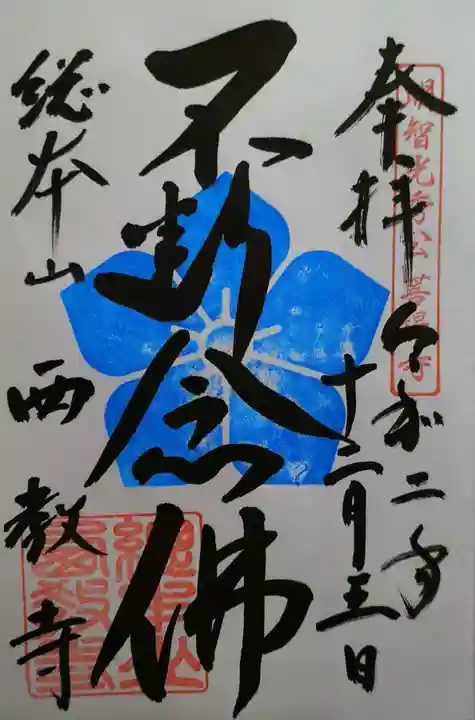 明智光秀公菩提寺
奉拝
令和二年
十二月三日
不断念佛
総本山
西教寺